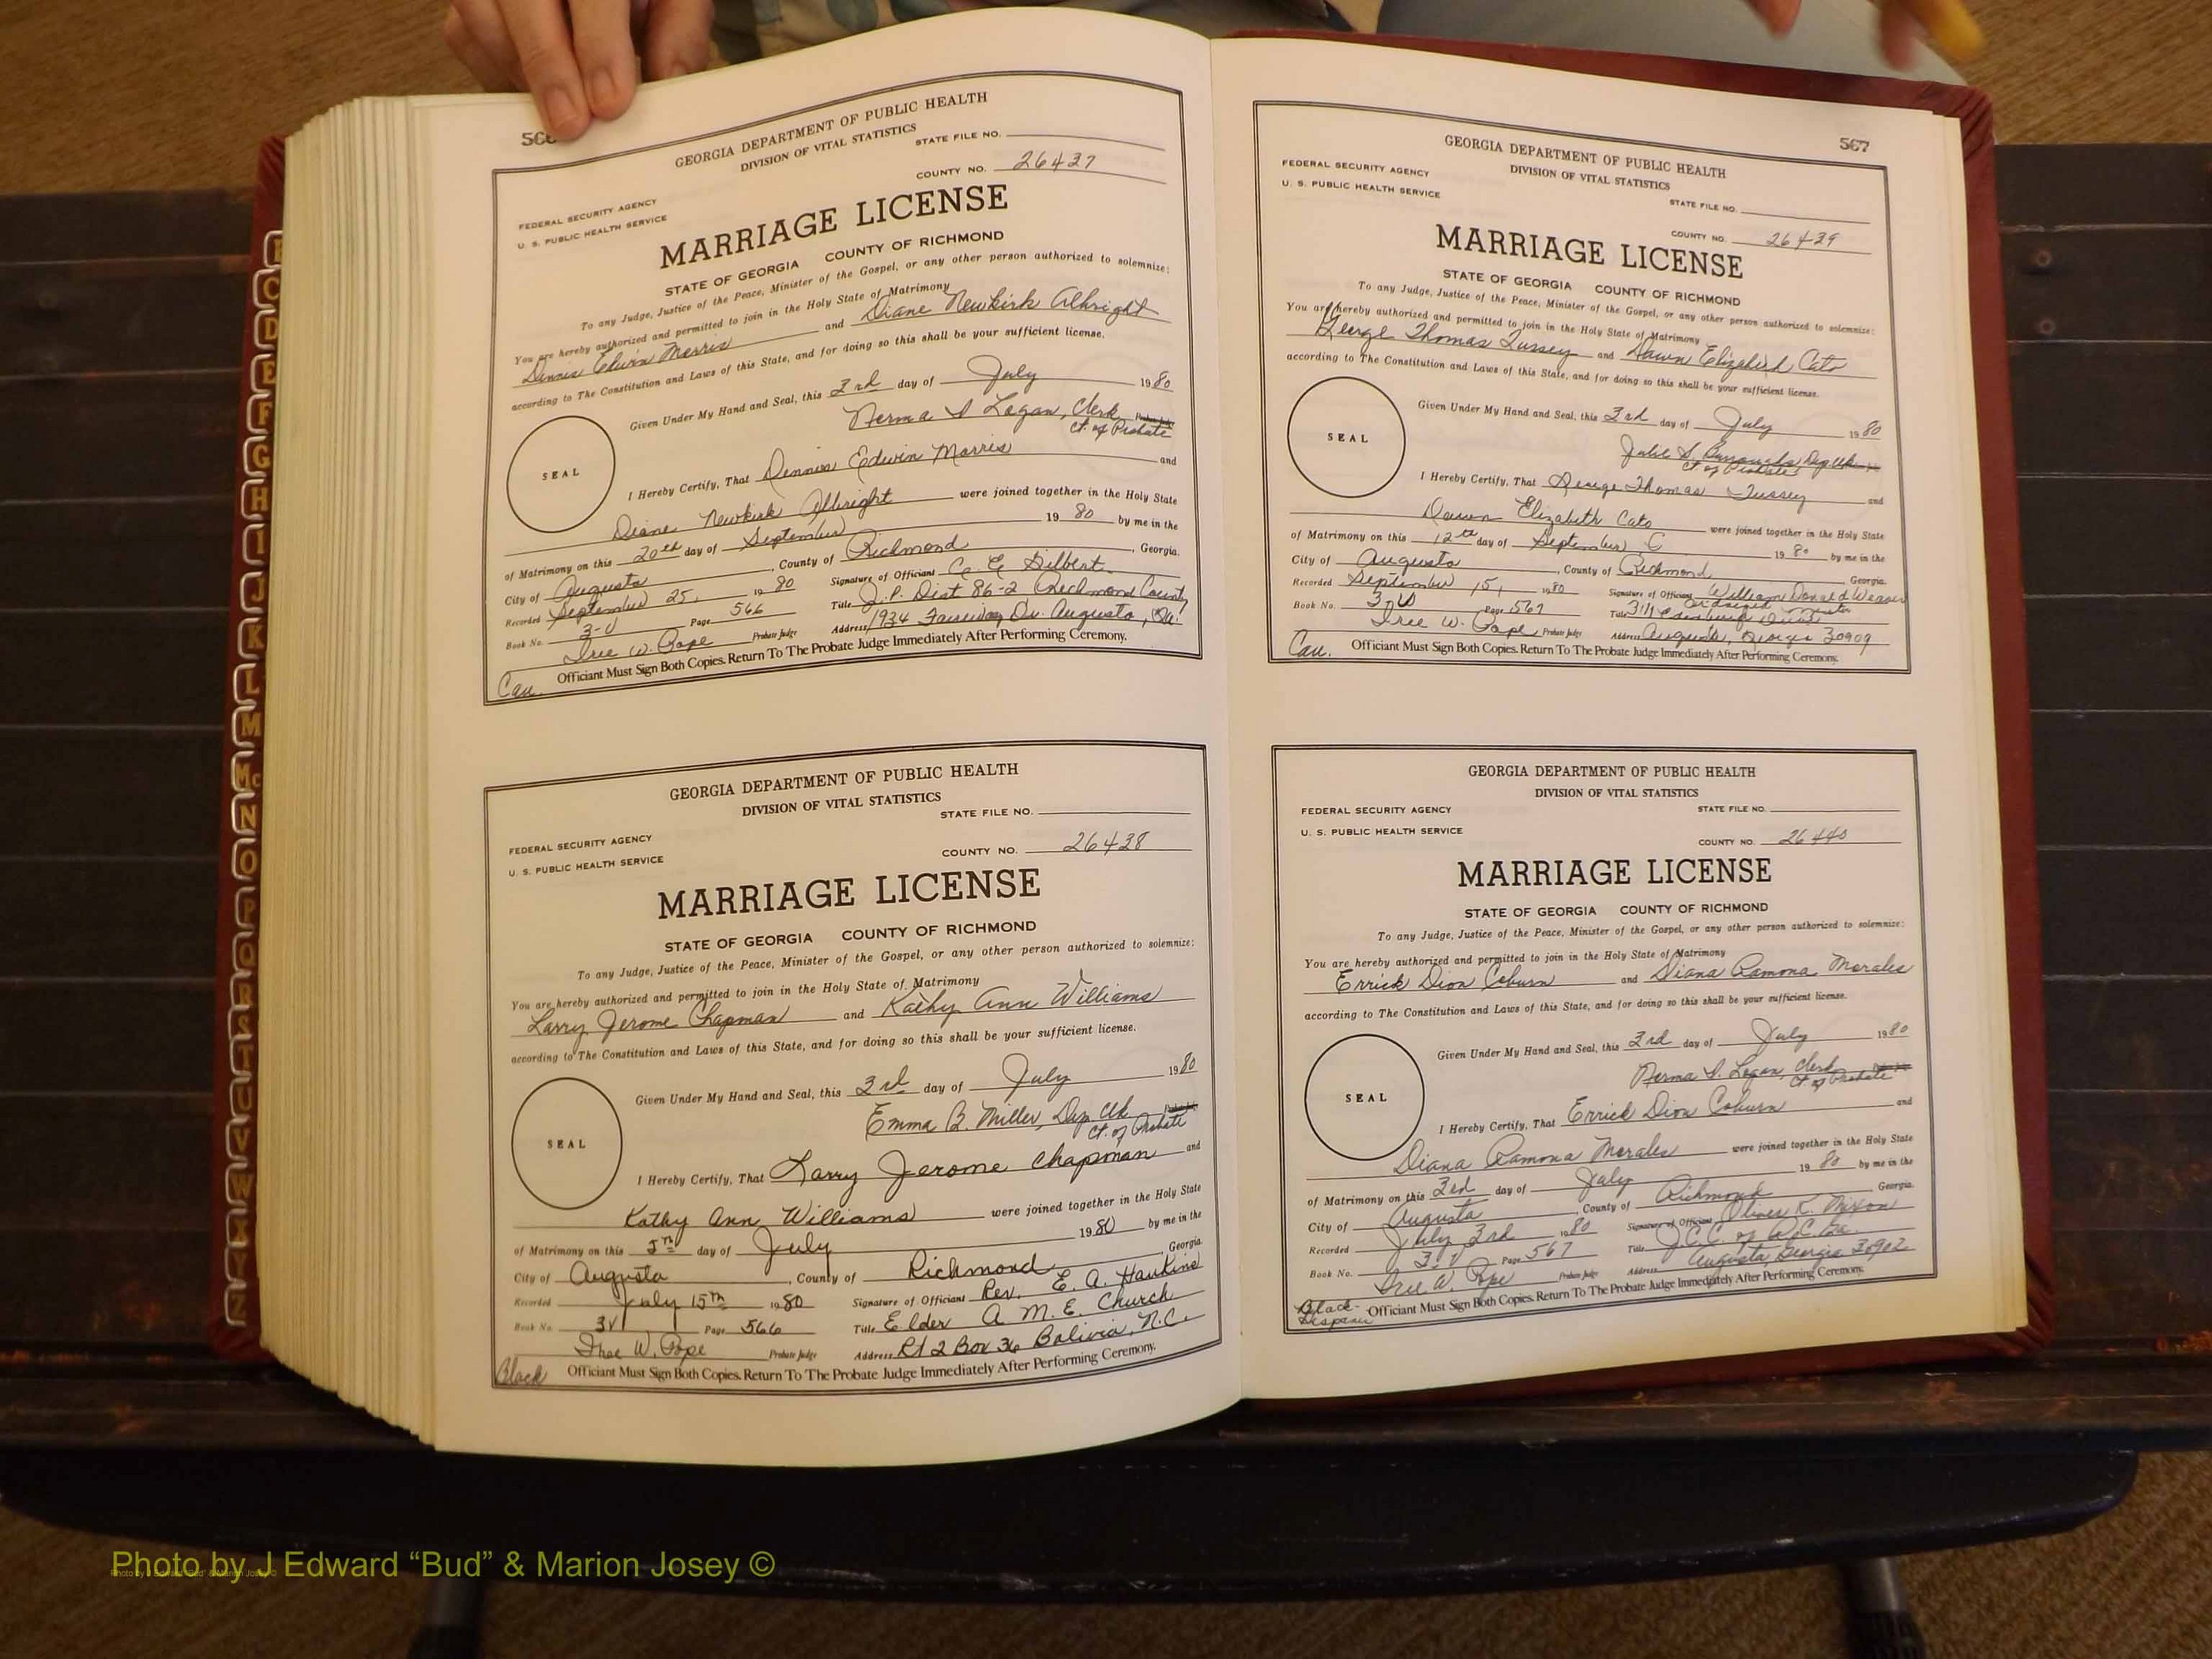 566
GEORGIA DEPARTMENT OF PUBLIC HEALTH
DIVISION OF VITAL STATISTICS
STATE FILE NO.
COUNTY NO. 26437
FEDERAL SECURITY AGENCY
U. S. PUBLIC HEALTH SERVICE
MARRIAGE LICENSE
STATE OF GEORGIA COUNTY OF RICHMOND
To any Judge, Justice of the Peace, Minister of the Gospel, or any other person authorized to solemnize:
You are hereby authorized and permitted to join in the Holy State of Matrimony
Dennis Edwin Morris and Diane Newkirk Albright
according to The Constitution and Laws of this State, and for doing so this shall be your sufficient license.
Given Under My Hand and Seal, this 3rd day of July 1980
Norma S Logan, Clerk
Ct. of Probate
SEAL
I Hereby Certify, That Dennis Edwin Morris and
Diane Newkirk Albright were joined together in the Holy State
of Matrimony on this 20th day of September 1980 by me in the
City of Augusta, County of Richmond, Georgia.
Recorded September 25, 1980 Signature of Officiant C E Gilbert
Book No. 3-U Page 566 Title J.P. Dist 86-2 Richmond County
Iree W. Pope Probate Judge Address 1934 Fairway Dr. Augusta, Ga.
Cau. Officiant Must Sign Both Copies. Return To The Probate Judge Immediately After Performing Ceremony.
GEORGIA DEPARTMENT OF PUBLIC HEALTH
DIVISION OF VITAL STATISTICS
STATE FILE NO.
FEDERAL SECURITY AGENCY
U. S. PUBLIC HEALTH SERVICE
COUNTY NO. 26438
MARRIAGE LICENSE
STATE OF GEORGIA COUNTY OF RICHMOND
To any Judge, Justice of the Peace, Minister of the Gospel, or any other person authorized to solemnize:
You are hereby authorized and permitted to join in the Holy State of Matrimony
Larry Jerome Chapman and Kathy Ann Williams
according to The Constitution and Laws of this State, and for doing so this shall be your sufficient license.
Given Under My Hand and Seal, this 3rd day of July 1980
Emma B. Miller, Dep. Clk
Ct. of Probate
SEAL
I Hereby Certify, That Larry Jerome Chapman and
Kathy Ann Williams were joined together in the Holy State
of Matrimony on this 5th day of July 1980 by me in the
City of Augusta, County of Richmond Georgia.
Recorded July 15th 1980 Signature of Officiant Rev. E. A. Hankins
Book No. 3V Page 566 Title Elder A. M. E. Church
Iree W. Pope Probate Judge Address Rt 2 Box 36 Bolivia, N.C.
Black Officiant Must Sign Both Copies. Return To The Probate Judge Immediately After Performing Ceremony.
567
GEORGIA DEPARTMENT OF PUBLIC HEALTH
DIVISION OF VITAL STATISTICS
FEDERAL SECURITY AGENCY
U. S. PUBLIC HEALTH SERVICE
STATE FILE NO.
COUNTY NO. 26439
MARRIAGE LICENSE
STATE OF GEORGIA COUNTY OF RICHMOND
To any Judge, Justice of the Peace, Minister of the Gospel, or any other person authorized to solemnize:
You are hereby authorized and permitted to join in the Holy State of Matrimony
George Thomas Tussey and Dawn Elizabeth Cato
according to The Constitution and Laws of this State, and for doing so this shall be your sufficient license.
Given Under My Hand and Seal, this 3rd day of July 1980
Julie S. Burroughs, Dep Clk
Ct of Probate
SEAL
I Hereby Certify, That George Thomas Tussey and
Dawn Elizabeth Cato were joined together in the Holy State
of Matrimony on this 12th day of September 1980 by me in the
City of Augusta, County of Richmond Georgia.
Recorded September 15, 1980 Signature of Officiant William Donald Weaver
Ordained Minister
Book No. 3-U Page 567 Title 3111 Drive
Iree W. Pope Probate Judge Address Augusta, Georgia 30909
Cau. Officiant Must Sign Both Copies. Return To The Probate Judge Immediately After Performing Ceremony.
GEORGIA DEPARTMENT OF PUBLIC HEALTH
DIVISION OF VITAL STATISTICS
FEDERAL SECURITY AGENCY STATE FILE NO.
U. S. PUBLIC HEALTH SERVICE
COUNTY NO. 26440
MARRIAGE LICENSE
STATE OF GEORGIA COUNTY OF RICHMOND
To any Judge, Justice of the Peace, Minister of the Gospel, or any other person authorized to solemnize:
You are hereby authorized and permitted to join in the Holy State of Matrimony
Errick Dion Coburn and Diana Ramona Morales
according to The Constitution and Laws of this State, and for doing so this shall be your sufficient license.
Given Under My Hand and Seal, this 3rd day of July 1980
Norma S. Logan, Clerk
Ct of Probate
SEAL
I Hereby Certify, That Errick Dion Coburn and
Diana Ramona Morales were joined together in the Holy State
of Matrimony on this 3rd day of July 1980 by me in the
City of Augusta, County of Richmond Georgia.
Recorded July 3rd 1980 Signature of Officiant Oliver K. Mixon
Book No. 3.V Page 567 Title J.C.C. of R.C. Ga.
Iree W. Pope Probate Judge Address Augusta, Georgia 30902
Black-Hispanic Officiant Must Sign Both Copies. Return To The Probate Judge Immediately After Performing Ceremony.
C
D
E
F
G
H
I
J
K
L
M
Mc
N
O
P
Q
R
S
T
U
V
W
X
Y
Z
Photo by J Edward “Bud” & Marion Josey ©
Photo by J Edward “Bud” & Marion Josey ©